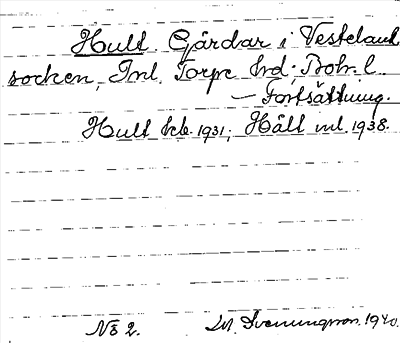 Hult. Gårdar i Västeland
socken, Inl. Torpe hrd; Boh. l.
— Fortsättning.
Hult kb. 1931; Hält inl. 1938.
No 2.
M. Svenungsson. 1940.